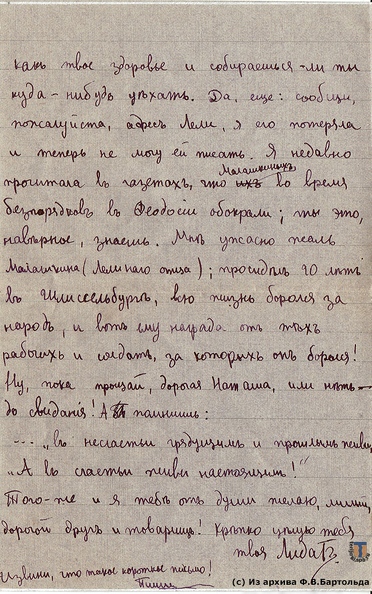 какъ твое здоровье и собираешься-ли ты
куда-нибудь уѣхать. Да, еще: сообщи,
пожалуйста, адресъ Лели, я его потеряла
и теперь не могу ей писать. Я недавно
Малашкиныхъ
прочитала въ газетахъ, что ихъ во время
безпорядковъ въ Феодосіи обокрали; ты это,
навѣрное, знаешь. Мнѣ ужасно жаль
Малашкина (Лелинаго отца); просидѣлъ 20 лѣтъ
въ Шлиссельбургѣ, всю жизнь боролся за
народъ, и вотъ ему награда отъ тѣхъ
рабочихъ и солдатъ, за которыхъ онъ боролся!
Ну, пока прощай, дорогая Наташа, или нѣтъ-
до свиданія! А помнишь:
..... „въ несчастьи грядущимъ и прошлымъ живи,
„А въ счастьи живи настоящимъ!"
Того-же и я тебѣ отъ души желаю, милый,
дорогой другъ и товарищъ! Крѣпко цѣлую тебя
твоя Лида
Извини, что такое короткое письмо!
Пиши
(с) Из архива Ф.В.Бартольда